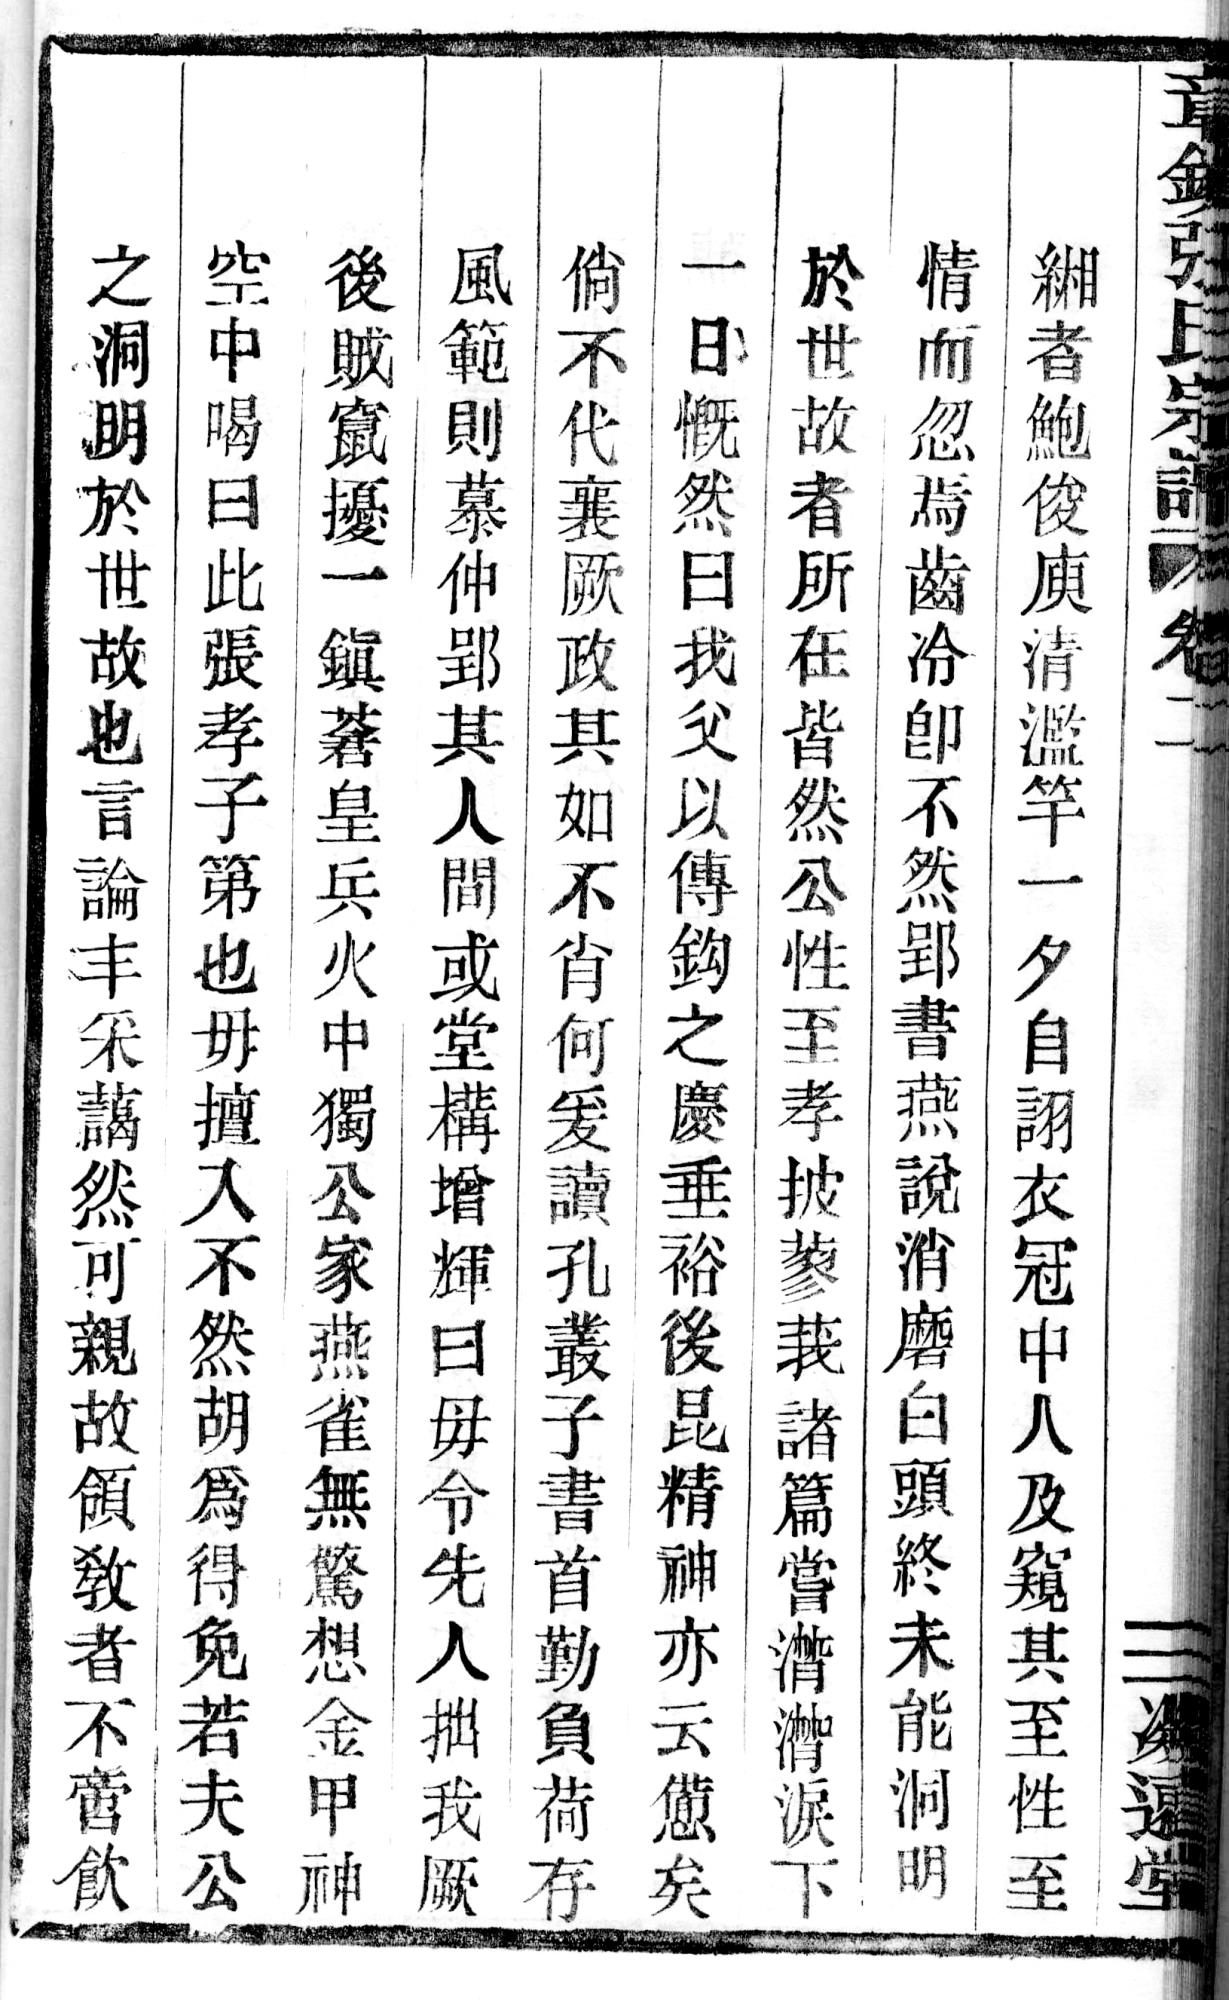 張氏宗譜 卷二
緗者鮑俊庾清濫竽一夕自詡衣冠中人及窺其至性至
情而忽焉齒冷卽不然郢書燕說消磨白頭終未能洞明
於世故者所在皆然公性至孝披蓼莪諸篇嘗潸潸淚下
一日慨然曰我父以傳鈎之慶垂裕後昆精神亦云憊矣
倘不代襄厥政其如不肖何爰讀孔叢子書首勤負荷存
風範則慕仲郢其人間或堂構增輝曰毋令先人拙我厥
後賊竄擾一鎭蒼皇兵火中獨公家燕雀無驚想金甲神
空中喝曰此張孝子第也毋擅入不然胡爲得免若夫公
之洞明於世故也言論丰采藹然可親故領敎者不啻飮
三 遠堂